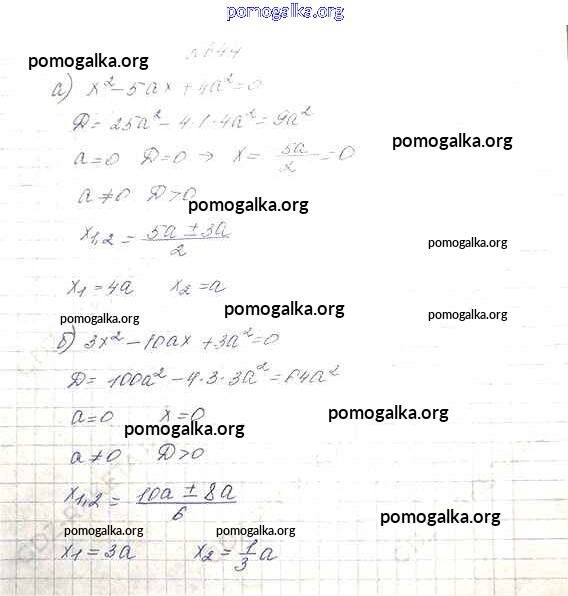 pomogalka.org
№644
pomogalka.org
а) x² - 5ax + 4a² = 0
D = 25a² - 4·1·4a² = 9a²
pomogalka.org
a = 0 D = 0 → x = 5a/2 = 0
a ≠ 0 D > 0
pomogalka.org
x₁,₂ = (5a ± 3a)/2
pomogalka.org
x₁ = 4a x₂ = a
pomogalka.org pomogalka.org pomogalka.org
б) 3x² - 10ax + 3a² = 0
D = 100a² - 4·3·3a² = 64a²
a = 0 x = 0
pomogalka.org
pomogalka.org
a ≠ 0 D > 0
x₁,₂ = (10a ± 8a)/6
pomogalka.org
pomogalka.org pomogalka.org
x₁ = 3a x₂ = 1/3 a